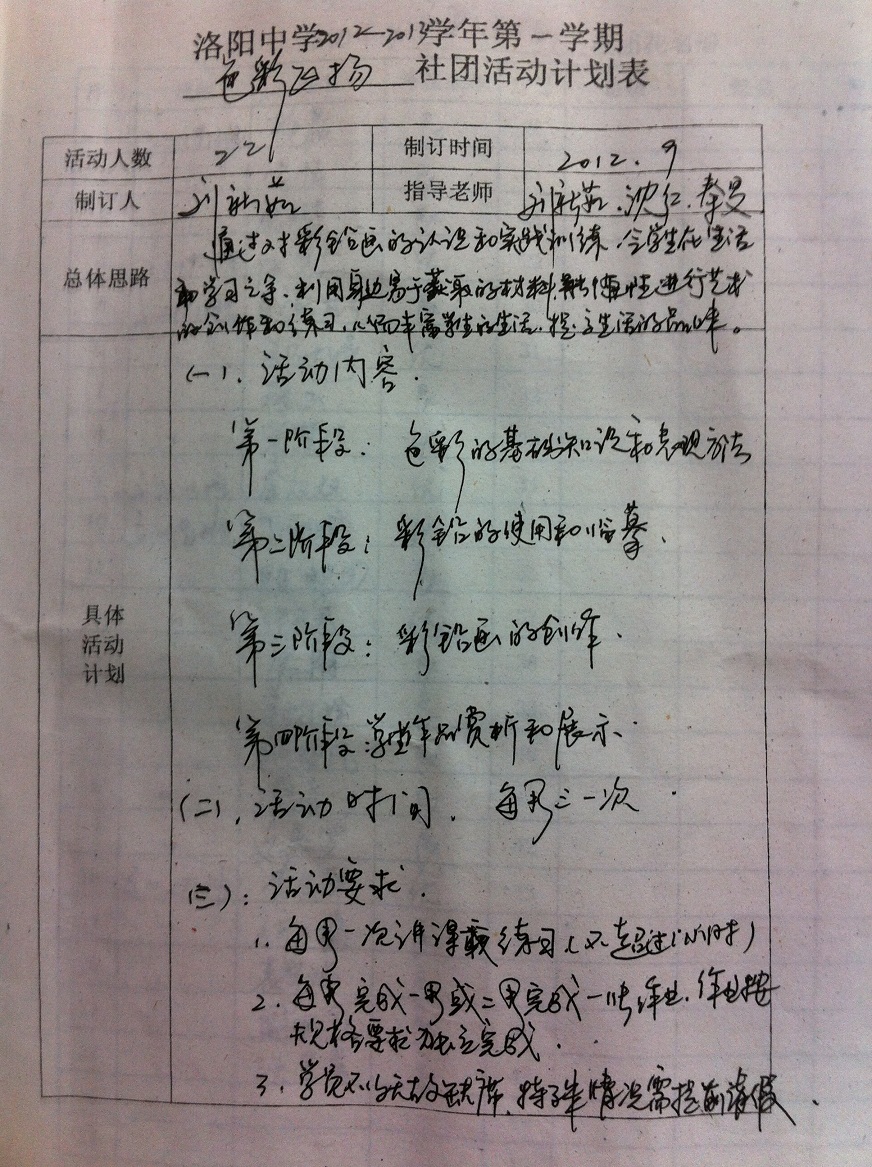 洛阳中学2012-2013学年第一学期
色彩飞扬 社团活动计划表
活动人数 22 制订时间 2012.9
制订人 刘新茹 指导老师 刘新茹、沈红、秦旻
总体思路
通过对彩铅画的认识和实践训练,令学生在生活
和学习之余,利用身边易于获取的材料,进行艺术
的创作和练习,从而丰富学生的生活,提高生活的品味。
具体
活动
计划
(一)、活动内容.
第一阶段:色彩的基础知识和表现方法
第二阶段:彩铅的使用和临摹、
第三阶段:彩铅画的创作、
第四阶段:学生作品赏析和展示.
(二)、活动时间. 每周三一次
(三):活动要求.
1. 每周一次讲课或练习(不超过1小时)
2. 每周完成一周或二周完成一张作业,作业按
规格要求独立完成.
3. 学员不得无故缺席,特殊情况需提前请假.